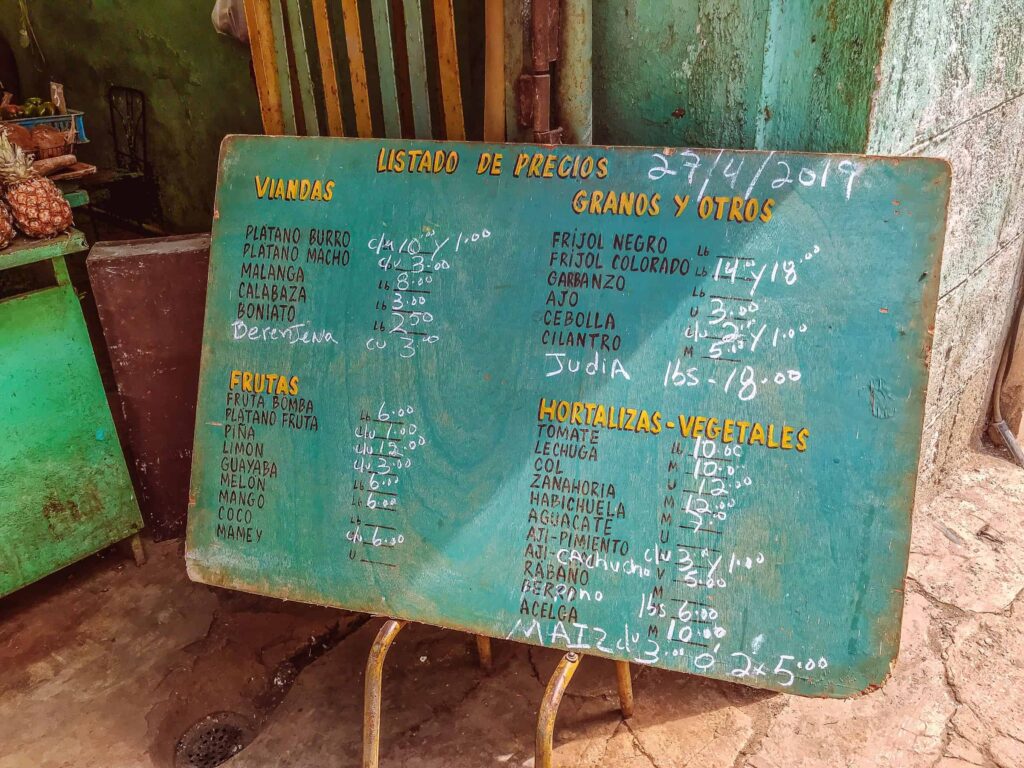 LISTADO DE PRECIOS 27/4/2019
VIANDAS
PLATANO BURRO c/u 10 y 1.00
PLATANO MACHO c/u 3.00
MALANGA Lb 8.00
CALABAZA Lb 3.00
BONIATO Lb 250
BerenJena cu 3.00
FRUTAS
FRUTA BOMBA Lb 6.00
PLATANO FRUTA c/u 1.00
PIÑA c/u 12.00
LIMON c/u 3.00
GUAYABA Lb 6.00
MELON Lb 6.00
MANGO Lb
COCO c/u 6.00
MAMEY U
GRANOS Y OTROS
FRÍJOL NEGRO Lb
FRÍJOL COLORADO Lb 14.00 y 18.00
GARBANZO Lb
AJO U 3.00
CEBOLLA c/u 2.00 y 1.00
CILANTRO M 5.00
JudiA lbs - 18.00
HORTALIZAS-VEGETALES
TOMATE Lb 10.00
LECHUGA M 10.00
COL U 12.00
ZANAHORIA M 12.00
HABICHUELA M 7.00
AGUACATE U
AJI-PIMIENTO c/u 3.00 y 1.00
AJI-CACHUCHO
RABANO 5.00
BERRONO lbs 6.00
ACELGA M 10.00
MAIZ c/u 3.00 O 2x5.00